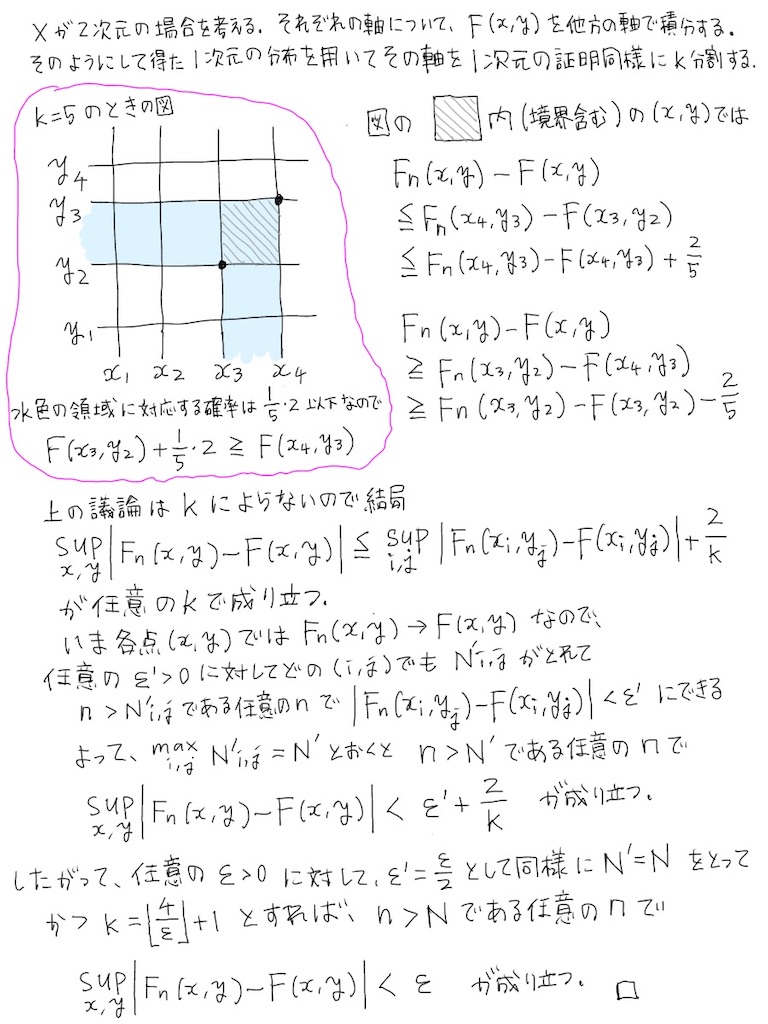 Xが2次元の場合を考える. それぞれの軸について、F(x,y)を他方の軸で積分する.
そのようにして得た1次元の分布を用いてその軸を1次元の証明同様にk分割する.
k=5のときの図
y4
y3
y2
y1
x1 x2 x3 x4
水色の領域に対応する確率は 1/5・2 以下なので
F(x3,y2)+1/5・2 ≧ F(x4,y3)
図の 内(境界含む)の(x,y)では
Fn(x,y)-F(x,y)
≦Fn(x4,y3)-F(x3,y2)
≦Fn(x4,y3)-F(x4,y3)+2/5
Fn(x,y)-F(x,y)
≧Fn(x3,y2)-F(x4,y3)
≧Fn(x3,y2)-F(x3,y2)-2/5
上の議論はkによらないので結局
sup x,y |Fn(x,y)-F(x,y)| ≦ sup i,j |Fn(xi,yj)-F(xi,yj)|+2/k
が任意のkで成り立つ.
いま各点(x,y)ではFn(x,y)→F(x,y)なので、
任意のε'>0に対してどの(i,j)でもN'i,jがとれて
n>N'i,jである任意のnで|Fn(xi,yj)-F(xi,yj)|<ε'にできる
よって、max i,j N'i,j=N'とおくと n>N'である任意のnで
sup x,y |Fn(x,y)-F(x,y)| < ε'+2/k が成り立つ.
したがって、任意のε>0に対して、ε'=ε/2として同様にN'=Nをとって
かつk=⌊4/ε⌋+1とすれば、n>Nである任意のnで
sup x,y |Fn(x,y)-F(x,y)| < ε が成り立つ. □